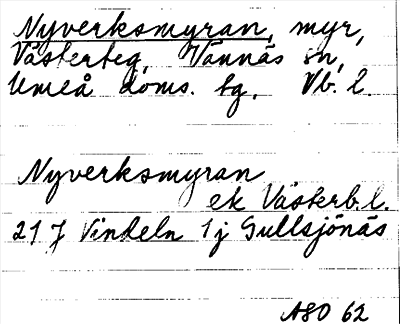 Nyverksmyran, myr,
Västerteg, Vännäs sn,
Umeå doms. tg. Vb. l.
Nyverksmyran
ek Västerb.l.
21 J Vindeln 1j Gullsjönäs
ASO 62